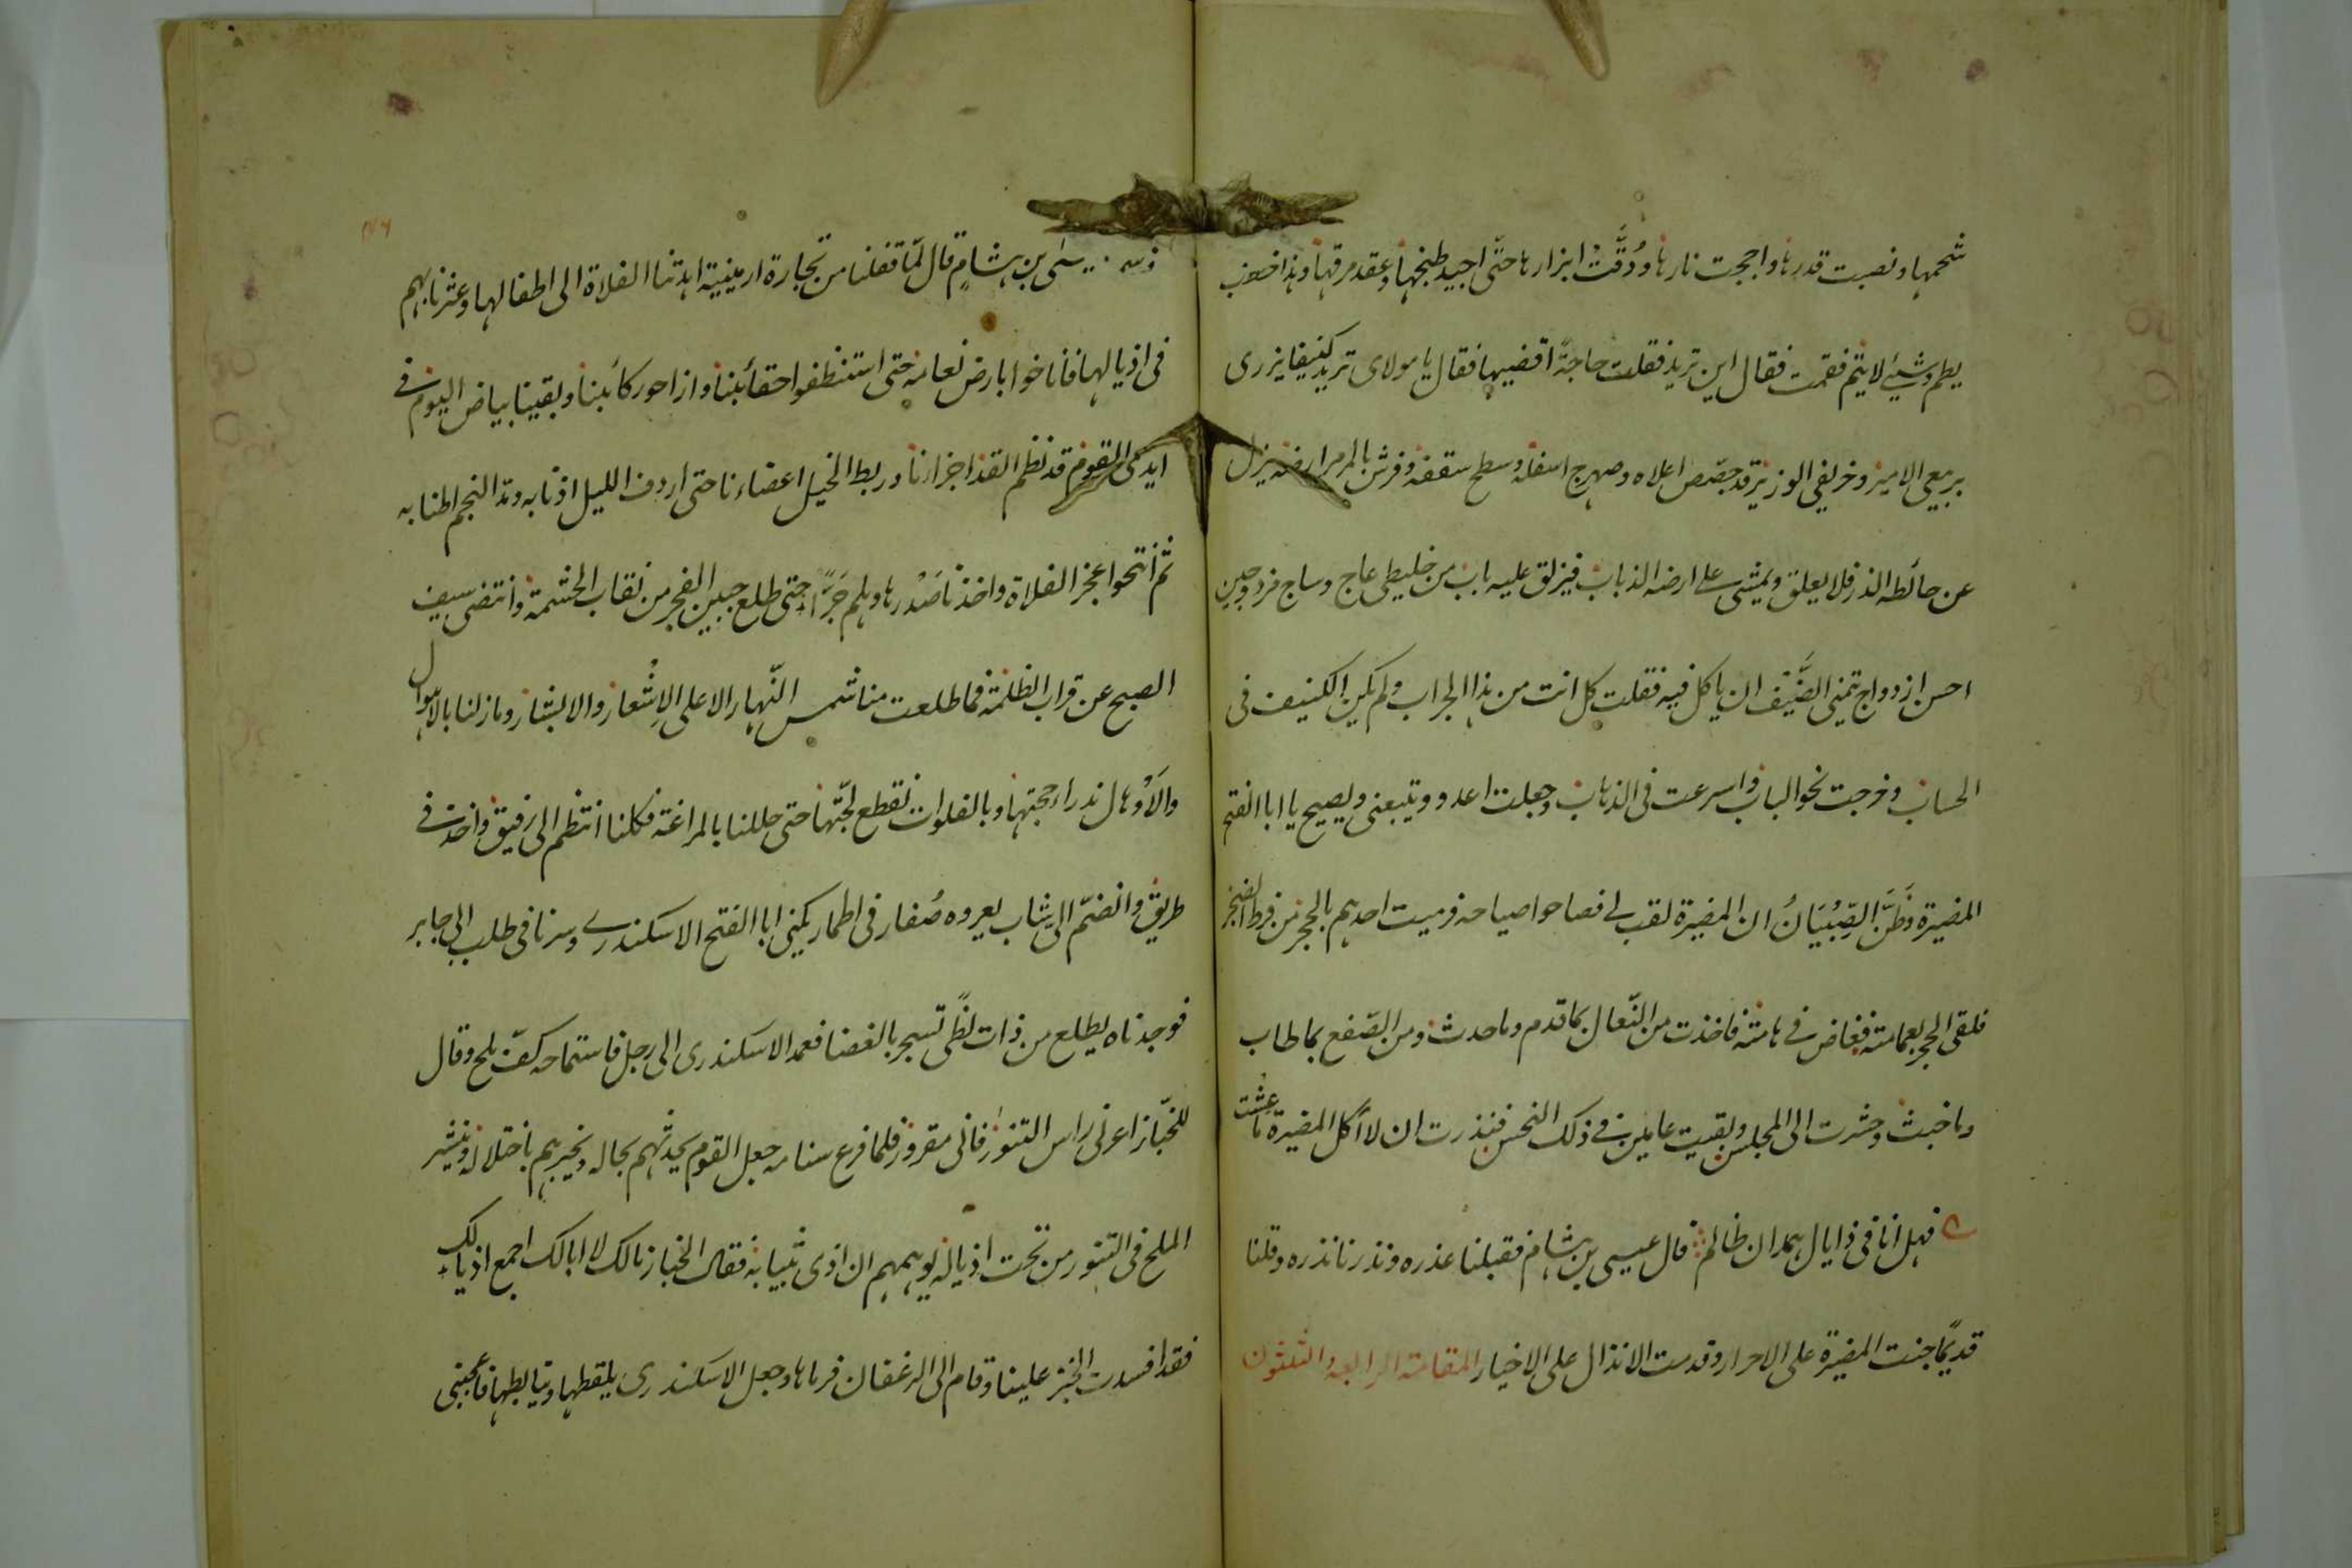 شحمها ونصبت قدرها واججت نارها ودُقَّتْ ابزارها حتّى اجيد طبخها وعقد مرقها وهذا خطب
يطم وشيئ لا يتم فقمت فقال اين تريد فقلت حاجةً اقضيها فقال يا مولاى تريد كنيفا يزرى
بربيعى الامير وخريفى الوزير قد جصّص اعلاه وصهرج اسفله وسطح سقفه وفرش بالمرمر ارضه يزل
عن حائطه الذر فلا يعلق ويمشى على ارضه الذباب فيزلق عليه باب من خليطى عاج وساج مزدوجين
احسن ازدواج يتمنى الضَّيْف ان ياكل فيه فقلت كل انت من هذا الجراب ولم يكن الكنيف فى
الحساب وخرجت نحو الباب واسرعت فى الذهاب وجعلت اعدو ويتبعنى ويصيح يا ابا الفتح
المضيرة وظَنَّ الصِّبْيَانُ ان المضيرة لقب لى فصاحوا صياحه فرميت احدهم بالحجر من فرط الضجر
فلقى الحجر بعمامته فغاص فى هامته فاخذت من النّعال بما قدم وما حدث ومن الصّفع بما طاب
وما خبث وحشرت الى المجلس وبقيت عامين فى ذلك النحس فنذرت ان لا آكل المضيرة ما عشت
فهل انا فى ذا يال همدان ظالم قال عيسى بن هشام فقبلنا عذره ونذرنا نذره وقلنا
قديمًا جنت المضيرة على الاحرار وقدمت الانذال على الاخيار المقامة الرابعة والثلثون
سى بن هشامٍ قال لمّا قفلنا من تجارة ارمينية اهدتنا الفلاة الى اطفالها وعثرنا بهم
فى اذيالها فاناخوا بارض نعامة حتى استنظفوا حقائبنا وازاحوا ركائبنا وبقينا بياض اليوم فى
ايدى القوم قد نظم القد اجزارنا وربط الخيل اعضاءنا حتى اردف الليل اذنابه ومد النجم اطنابه
ثم انتحوا عجز الفلاة واخذنا صَدْرها وهلم جَرًّا حتى طلع جبين الفجر من نقاب الحشمة وانتضى سيف
الصبح عن قراب الظلمة فما طلعت منا شمس النّهار الا على الاِشْعار والابشار وما زلنا بالاهوال
والاَوْهال ندراء حجبتها وبالفلوات نقطع لجّتها حتى حللنا بالمراغة فكلنا انتظم الى رفيق واخذ فى
طريق وانضمّ الى شاب يعروه صُفار فى اطمار يكنى ابا الفتح الاسكندرى وسرنا فى طلب ابى جابر
فوجدناه يطلع من ذات لظًى تسجر بالغضا فعمد الاسكندرى الى رجل فاستماحه كفّ ملح وقال
للخبّاز اعرنى راس التنور فانى مقرور فلما فرع سنامه جعل القوم يحدثهم بحاله ويخبرهم باختلاله وينثر
الملح فى التنور من تحت اذياله ليوهمهم ان اذى بثيابه فقال الخباز مالك لا ابالك اجمع اذيالك
فقد افسدت الخبز علينا وقام الى الرغفان فرماها وجعل الاسكندرى يلقطها ويتابطها فاعجبنى